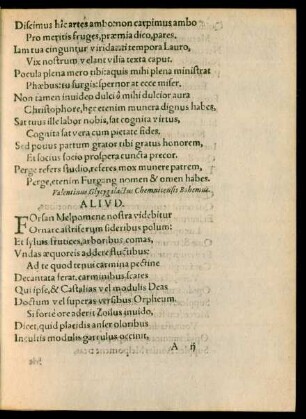 Discimus hîc artes ambo: non carpimus ambo
Pro meritis fruges, præmia dico, pares.
Iam tua cinguntur viridanti tempora Lauro,
Vix nostrum velant vilia texta caput.
Pocula plena mero tibi ac quis mihi plena ministrat
Phœbus: tu surgis: spernor at ecce miser.
Non tamen inuideo dulci ô mihi dulcior aura
Christophore, hęc etenim munera dignus habes,
Sat tuus ille labor nobis, sat cognita virtus,
Cognita sat vera cum pietate fides.
Sed potius partum grator tibi gratus honorem,
Et socius socio prospera cuncta precor.
Perge referre studio, referes mox munere patrem,
Perge, etenim Furgang nomen & omen habes.
Valentinus Glycygalactus Chemnicensis Bohemus.
ALIVD.
FOrsan Melpomene nostra videbitur
Ornare astriferum sideribus polum:
Et syluis frutices, arboribus comas,
Vndas æquoreis addere fluctibus:
Ad te quod tenui carmina pectine
Decantata ferat, carminibus scares
Qui ipse, & Castalias vel modulis Deas
Doctum vel superas versibus Orpheum.
Si forte ore aderit Zoilus inuido,
Dicet, quid placidis anser oloribus
Incultis modulis garrulus occinit,
A ij